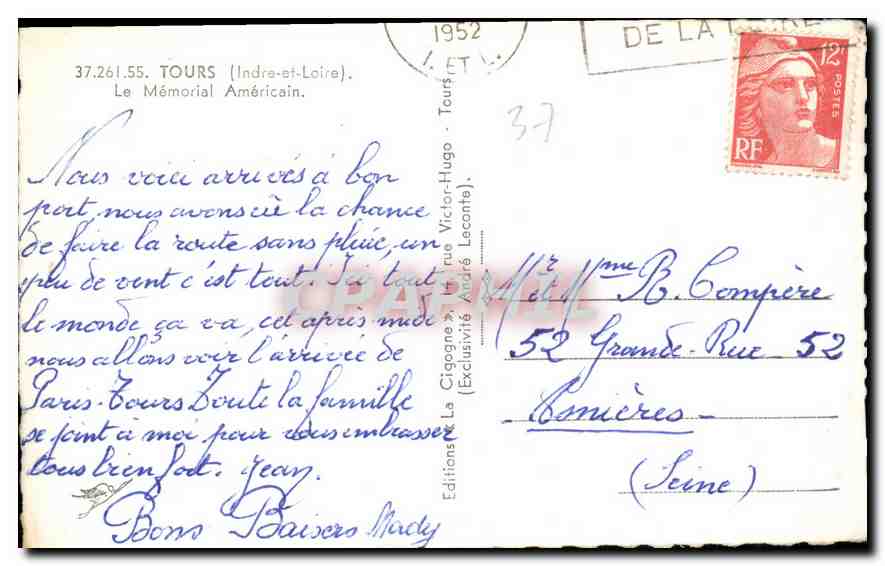 37.261.55. TOURS (Indre-et-Loire).
Le Mémorial Américain.
Nous voici arrivés à bon
port, nous avons eu la chance
de faire la route sans pluie, un
peu de vent c'est tout. Ici tout
le monde ça va, cet après midi
nous allons voir l'arrivée de
Paris-Tours Toute la famille
se joint à moi pour vous embrasser
tous bien fort. Jean.
Bons Baisers Mady
Editions « La Cigogne », rue Victor-Hugo - Tours
(Exclusivité André Leconte).
1952
I. ET L.
DE LA
12F
POSTES
RF
37
Mr et Mme R. Compère
52 Grande-Rue 52
Asnières-
(Seine)
CPARAMA